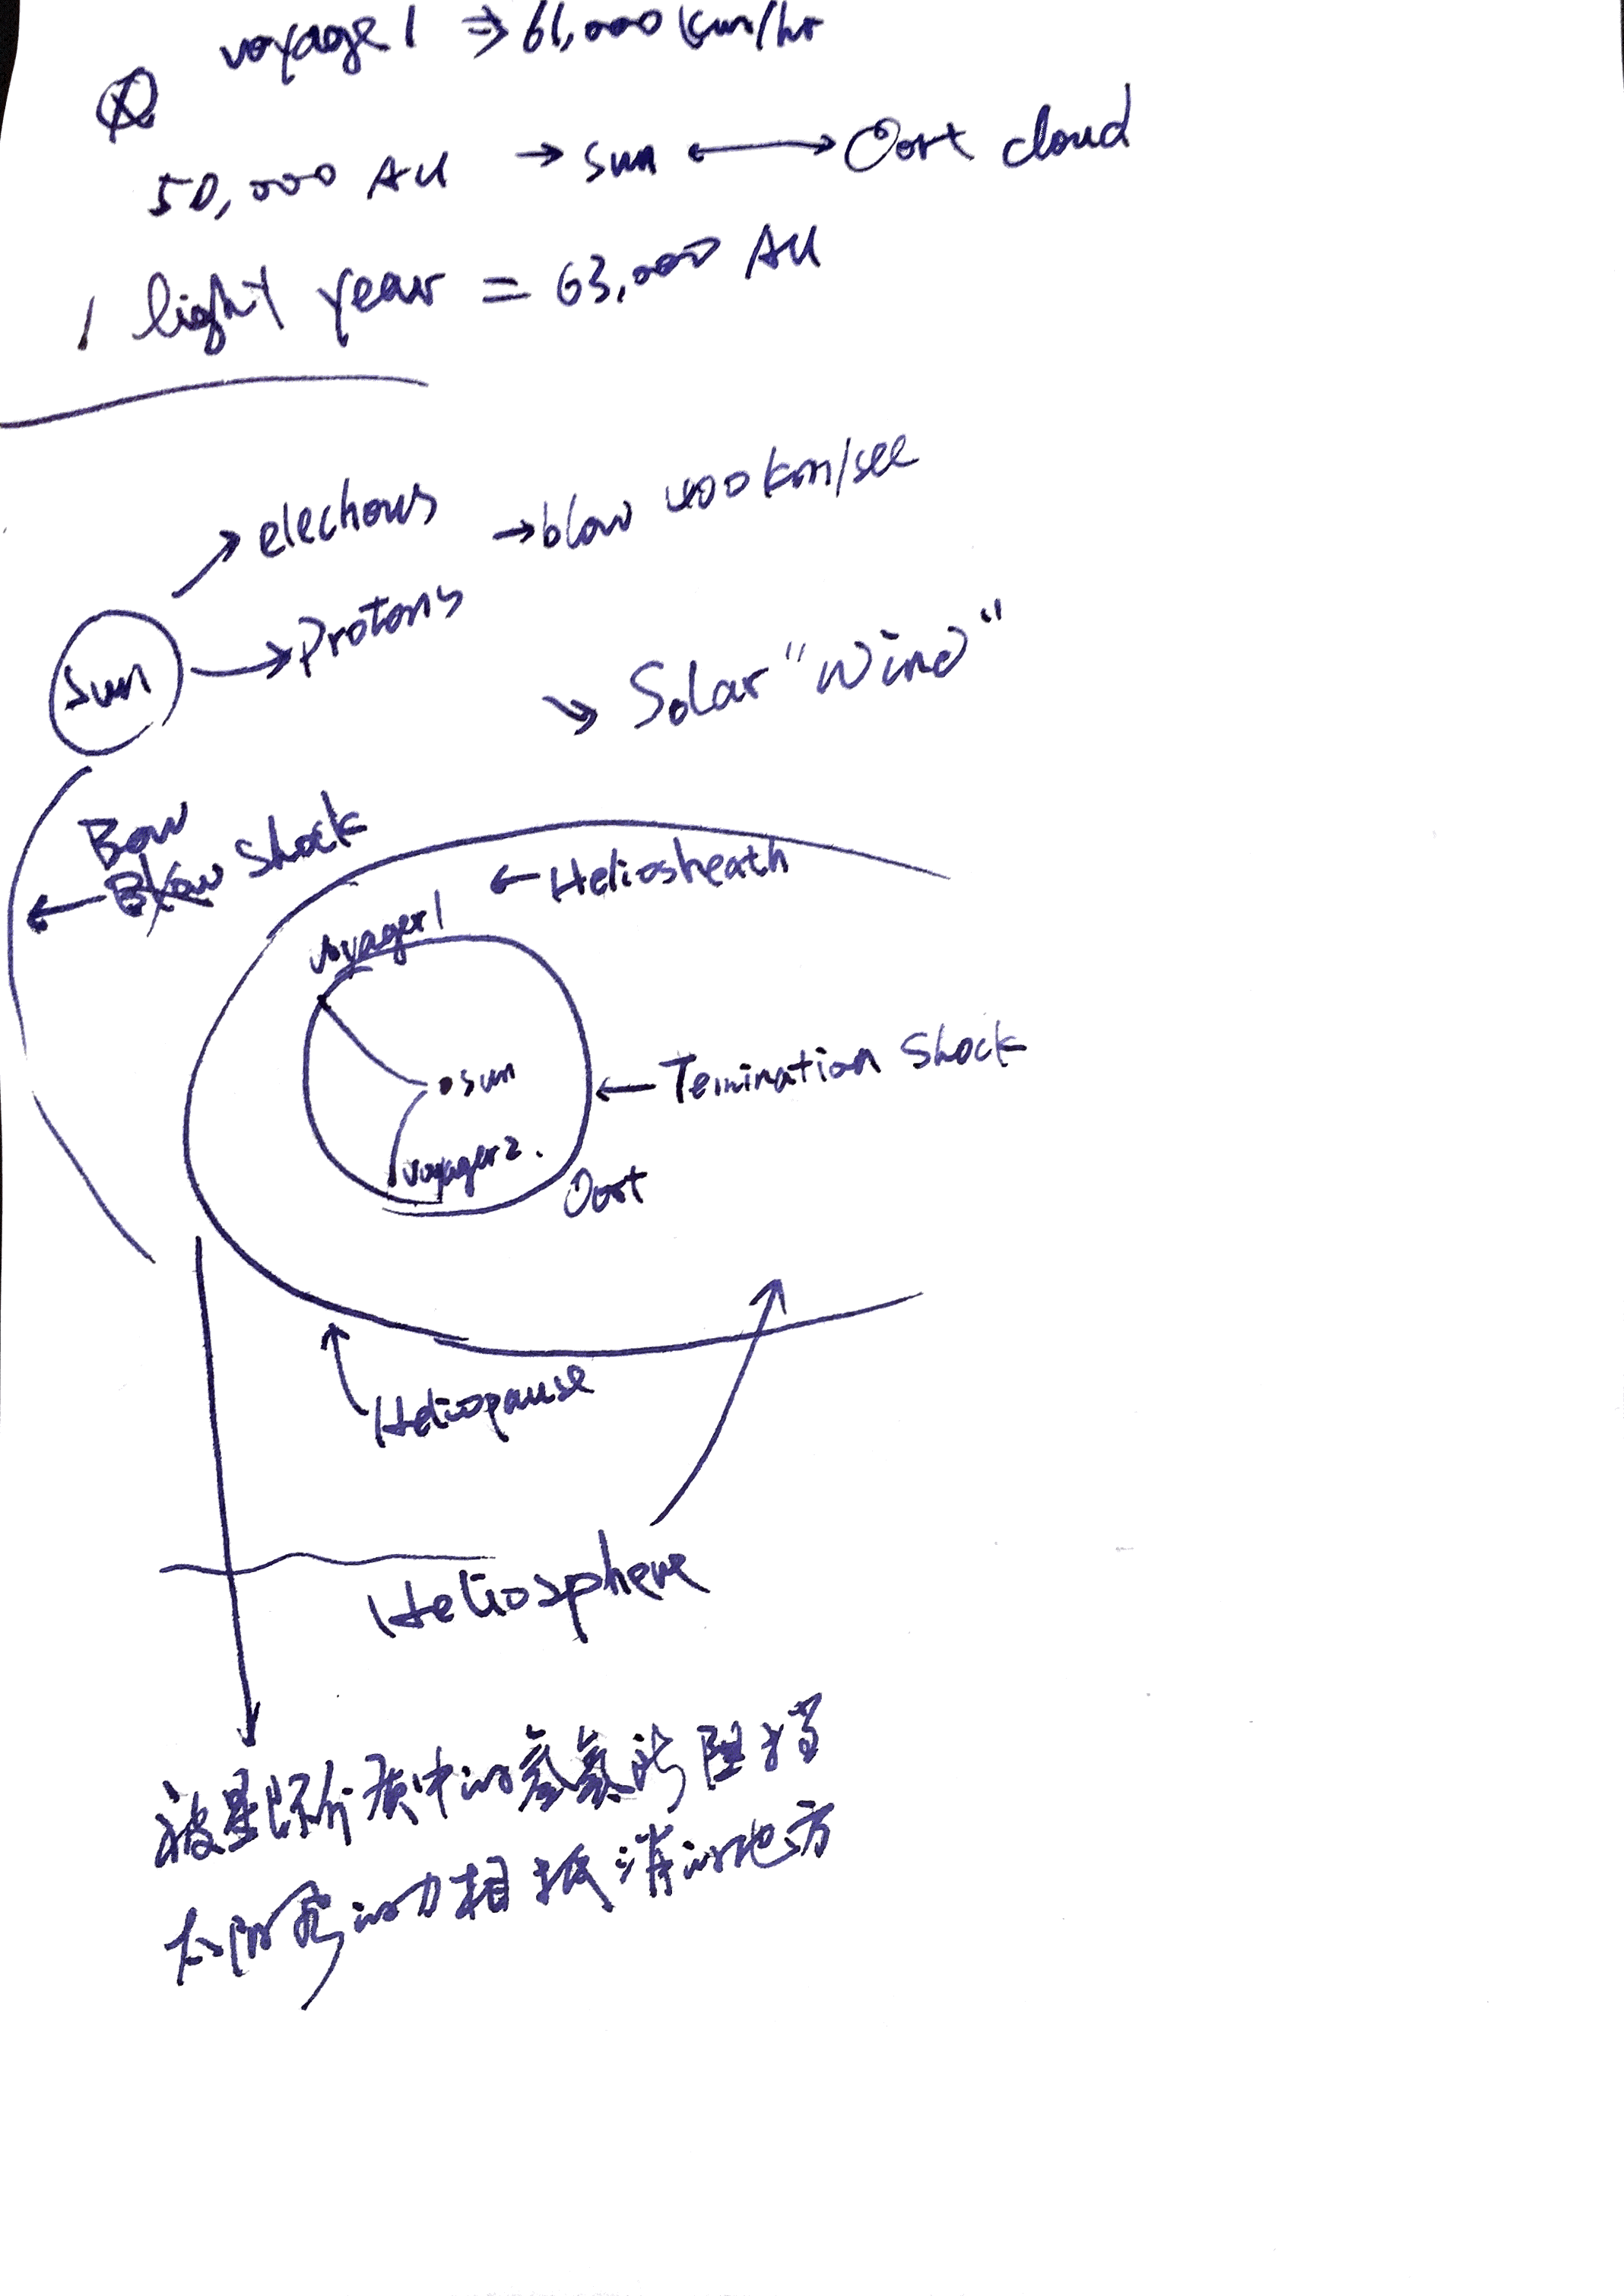 voyage 1 ⇒ 61,000 km/hr
50,000 AU → sun ↔ Oort cloud
1 light year = 63,000 AU
→ electrons
→ blow 400 km/sec
Sun → Protons
↘ Solar "Wind"
Bow
Blow Shock
← Heliosheath
voyager 1
sun
← Temination Shock
voyager 2.
Oort
Heliopause
Heliosphere
被星际介质中的氢氦所阻挡
太阳风的力相抵消的地方